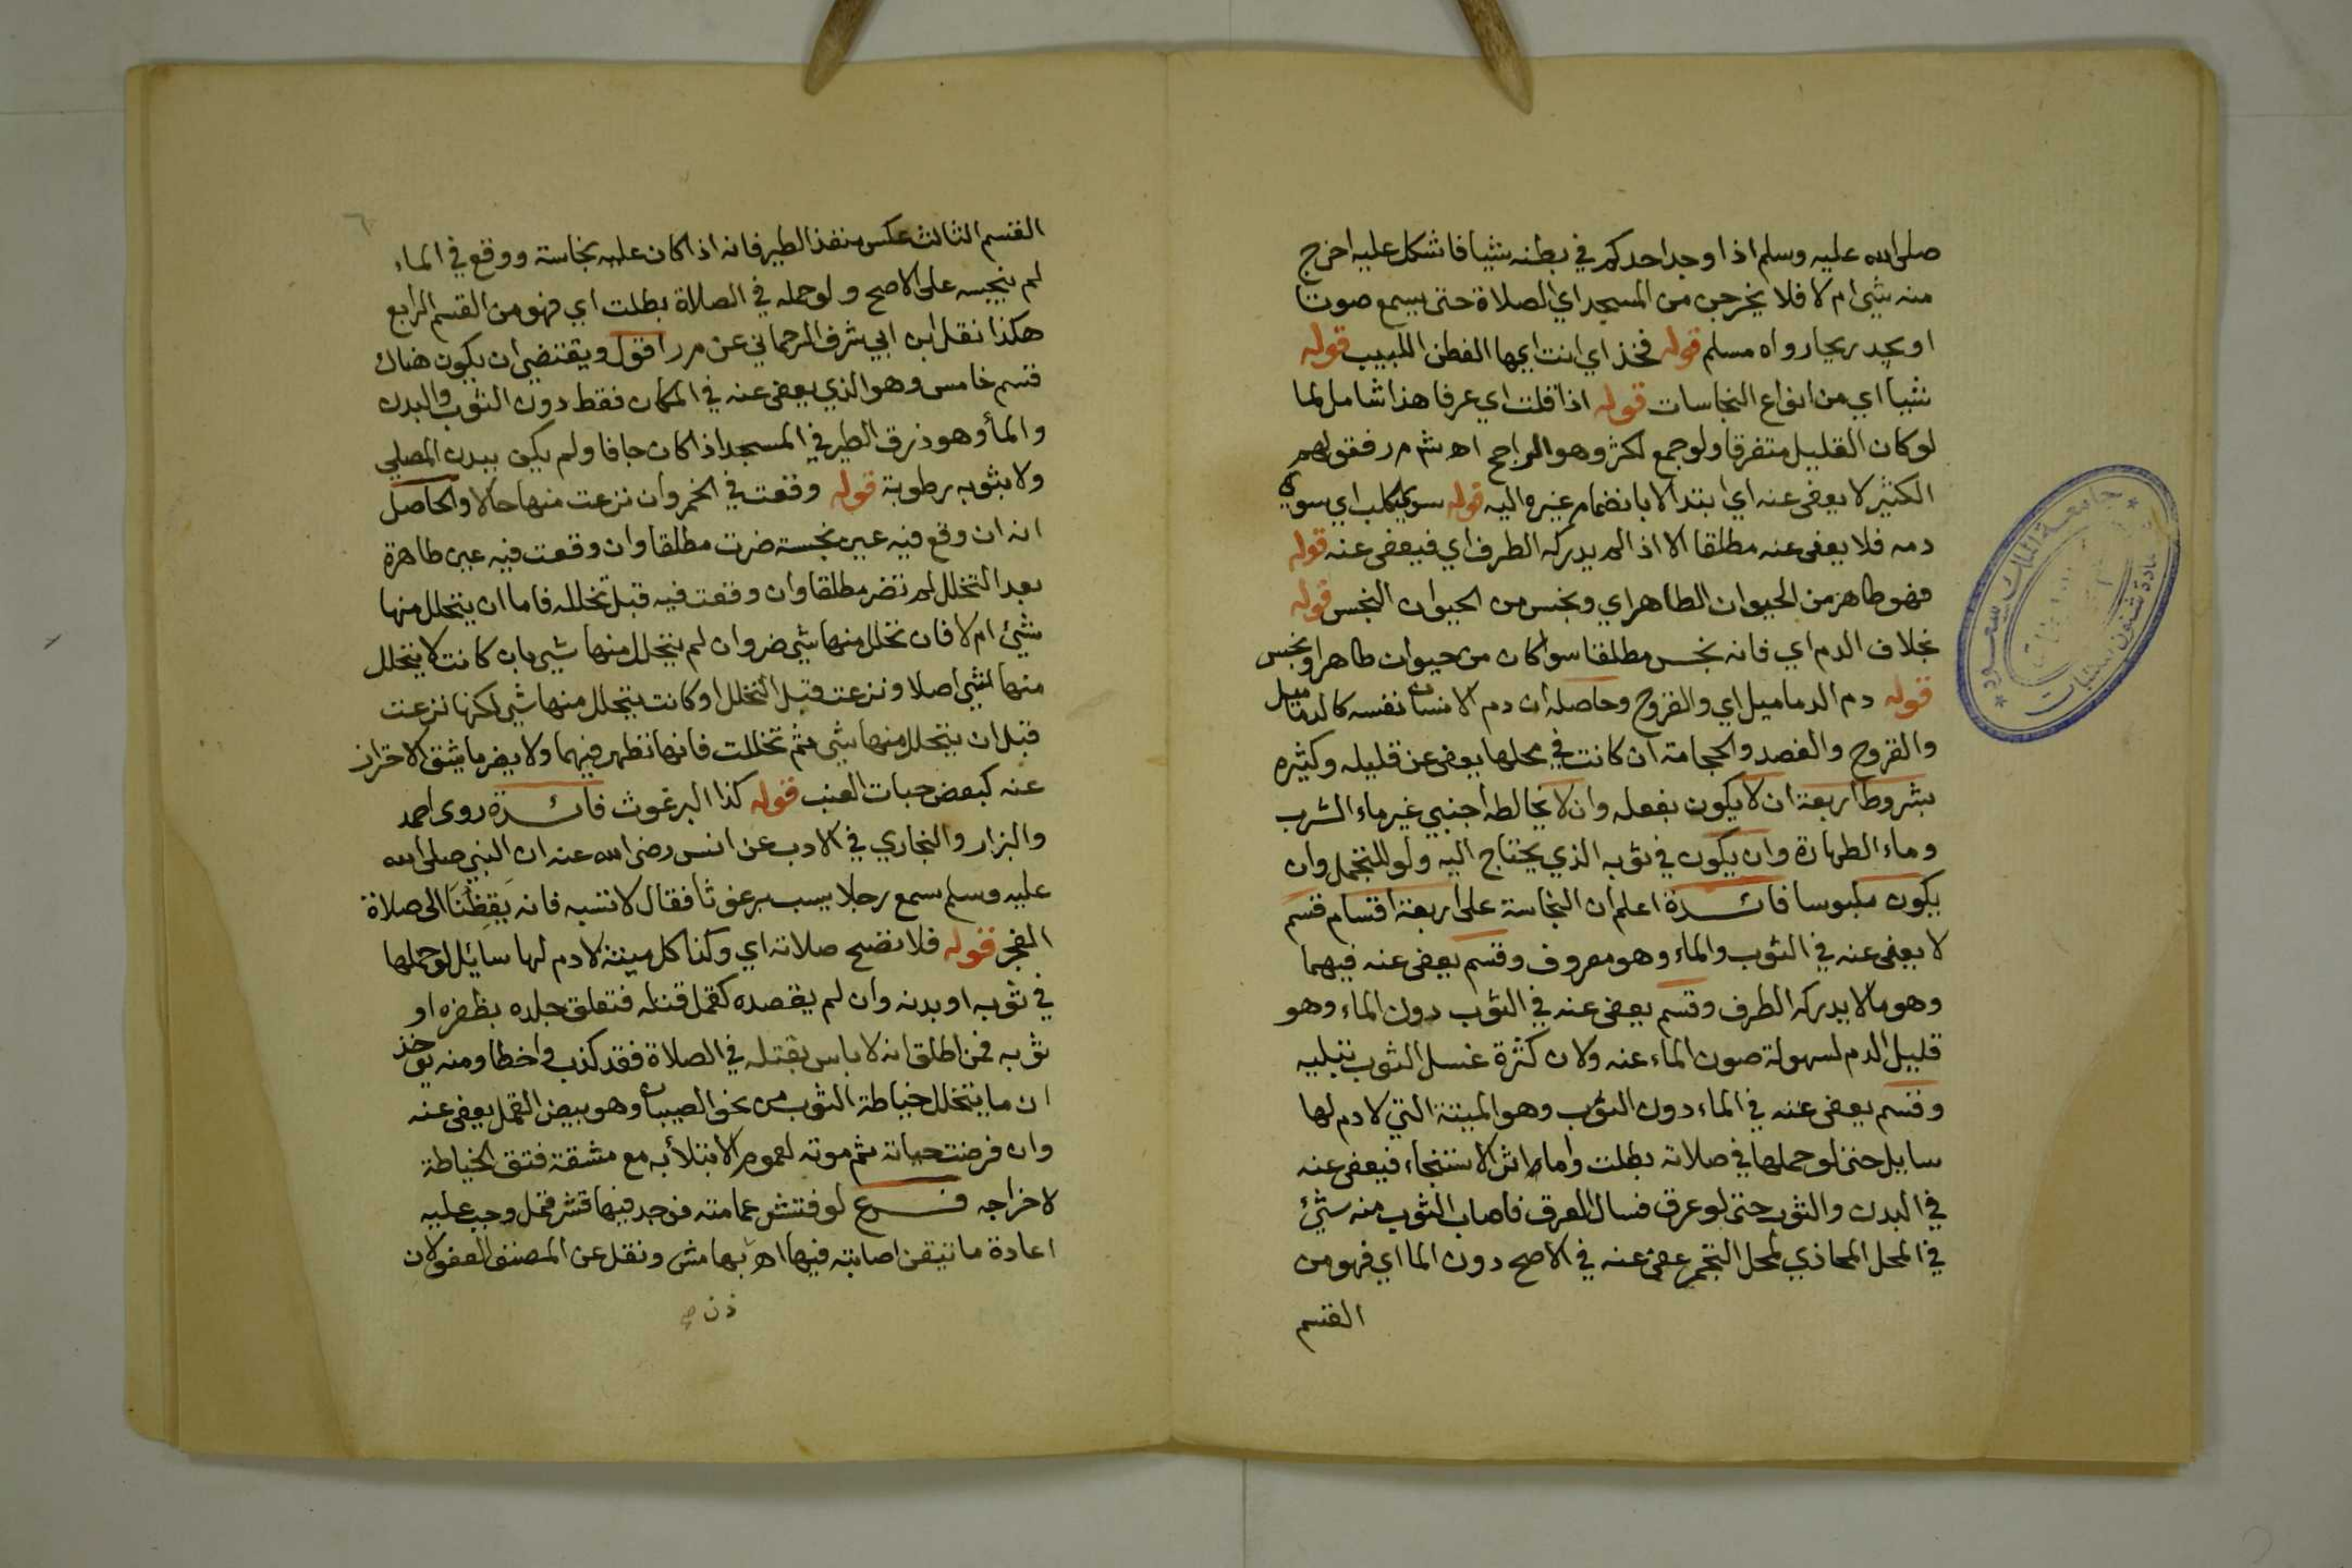 صلى الله عليه وسلم اذا وجد احدكم في بطنه شيا فاشكل عليه اخرج
منه شي ام لا فلا يخرجن من المسجد اي الصلاة حتى يسمع صوتا
او يجد ريحا رواه مسلم قوله فخذ اي انت ايها الفطن اللبيب قوله
شيا اي من انواع النجاسات قوله اذا قلت اي عرفا هذا شامل لما
لو كان القليل متفرقا ولو جمع لكثر وهو الراجح اه ش م ر فقولهم
الكثير لا يعفى عنه اي ابتدا لا بانضمام غيره اليه قوله سوى كلب اي سوى
دمه فلا يعفى عنه مطلقا الا اذا لم يدركه الطرف اي فيعفى عنه قوله
فهو طاهر من الحيوان الطاهر اي ونجس من الحيوان النجس قوله
بخلاف الدم اي فانه نجس مطلقا سوا كان من حيوان طاهر او نجس
قوله دم الدماميل اي والقروح وحاصله ان دم الانسان نفسه كالدماميل
والقروح والفصد والحجامة ان كانت في محلها يعفى عن قليله وكثيره
بشروط اربعة ان لا يكون بفعله وان لا يخالطه اجنبي غير ماء الشرب
وماء الطهارة وان يكون في ثوبه الذي يحتاج اليه ولو للتجمل وان
يكون ملبوسا فائدة اعلم ان النجاسة على اربعة اقسام قسم
لا يعفى عنه في الثوب والماء وهو معروف وقسم يعفى عنه فيهما
وهو ما لا يدركه الطرف وقسم يعفى عنه في الثوب دون الماء وهو
قليل الدم لسهولة صون الماء عنه ولان كثرة غسل الثوب تبليه
وقسم يعفى عنه في الماء دون الثوب وهو الميتة التي لا دم لها
سايل حتى لو حملها في صلاته بطلت واما اثر الاستنجاء فيعفى عنه
في البدن والثوب حتى لو عرق فسال العرق فاصاب الثوب منه شيئ
في المحل المحاذي لمحل التجمر عفي عنه في الاصح دون الما اي فهو من
القسم
القسم الثالث عكس منفذ الطير فانه اذا كان عليه نجاسة ووقع في الماء
لم ينجسه على الاصح ولو حمله في الصلاة بطلت اي فهو من القسم الرابع
هكذا نقل ابن ابي شرف الرحماني عن م ر اقول ويقتضي ان يكون هناك
قسم خامس وهو الذي يعفى عنه في المكان فقط دون الثوب والبدن
والمأ وهو ذرق الطير في المسجد اذا كان جافا ولم يكن ببدن المصلي
ولا بثوبه رطوبة قوله وقعت في الخمر وان نزعت منها حالا والحاصل
انه ان وقع فيه عين نجسة ضرت مطلقا وان وقعت فيه عين طاهرة
بعد التخلل لم تضر مطلقا وان وقعت فيه قبل تخلله فاما ان يتحلل منها
شيئ ام لا فان تخلل منها شي ضر وان لم يتحلل منها شيئ بان كانت لا يتحلل
منها شي اصلا ونزعت قبل التخلل او كانت يتحلل منها شي لكنها نزعت
قبل ان يتحلل منها شي ثم تخللت فانها تطهر فيهما ولا يضر ما يشق الاحتراز
عنه كبعض حبات العنب قوله كذا البرغوث فائدة روى احمد
والبزار والبخاري في الادب عن انس رضى الله عنه ان النبي صلى الله
عليه وسلم سمع رجلا يسب برغوثا فقال لا تسبه فانه يَقِظُنَا الى صلاة
الفجر قوله فلا تصح صلاته اي وكذا كل ميتة لا دم لها سائل لو حملها
في ثوبه او بدنه وان لم يقصده كقمل قتله فتعلق جلده بظفره او
ثوبه فمن اطلق انه لا باس بقتله في الصلاة فقد كذب واخطا ومنه يوخذ
ان ما يتخلل خياطة الثوب من نحو الصيبان وهو بيض القمل يعفى عنه
وان فرضت حياته ثم موته لعموم الابتلأ به مع مشقة فتق الخياطة
لاخراجه فرع لو فتش عمامته فوجد فيها قشر قمل وجب عليه
اعادة ما تيقن اصابته فيها اه بهامش ونقل عن المصنف العفو لان